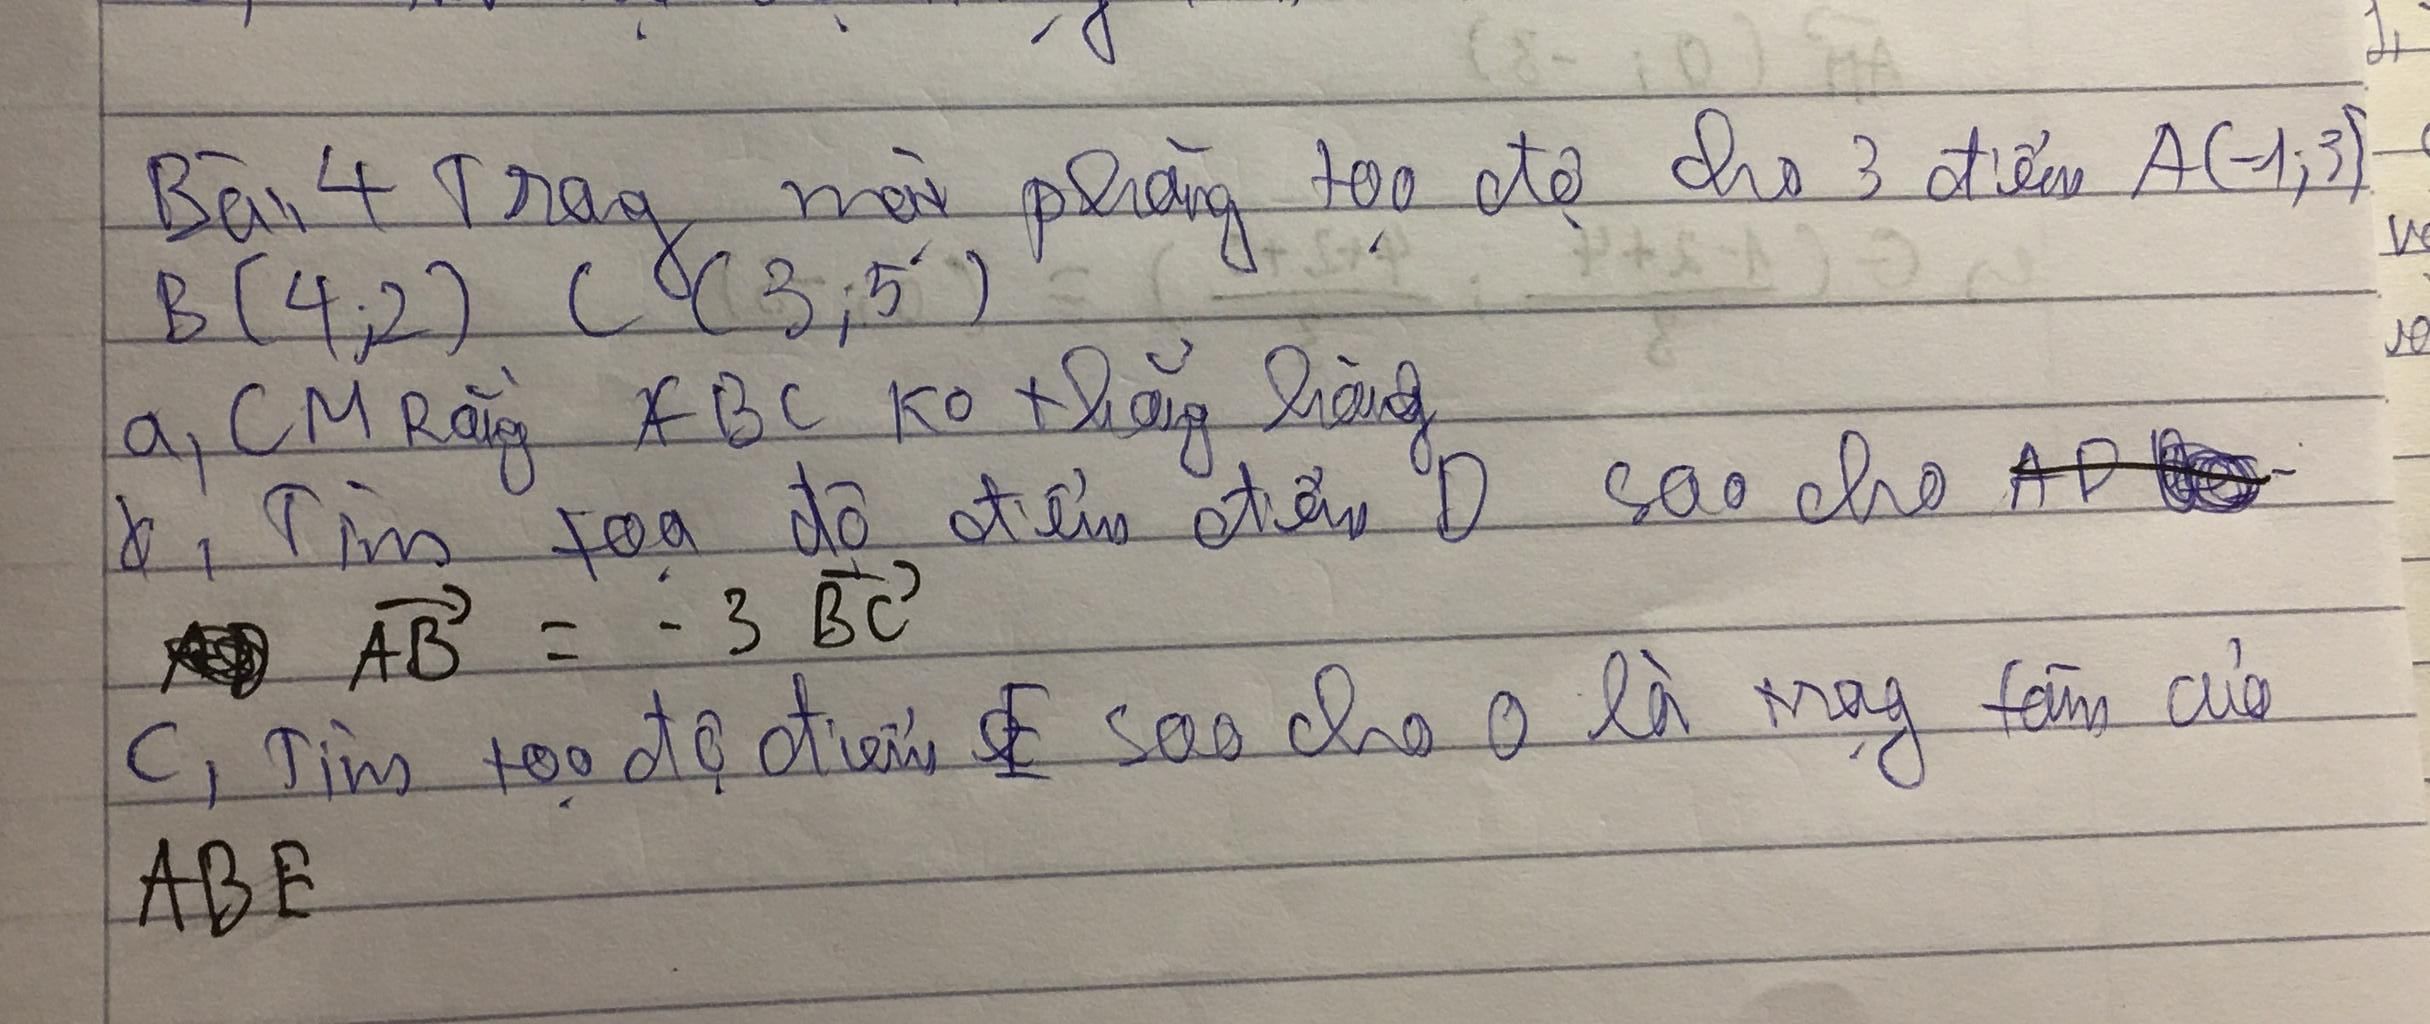 Bài 4 Trog mặt phẳng tọa độ cho 3 điểm A(-1;3)
B(4;2) C(3;5)
a, CM Rằg ABC ko thẳg hàng
b, Tìm tọa độ điểm điểm D sao cho AD
AB = -3 BC
C, Tìm tọa độ điểm E sao cho O là trọg tâm của
ABE